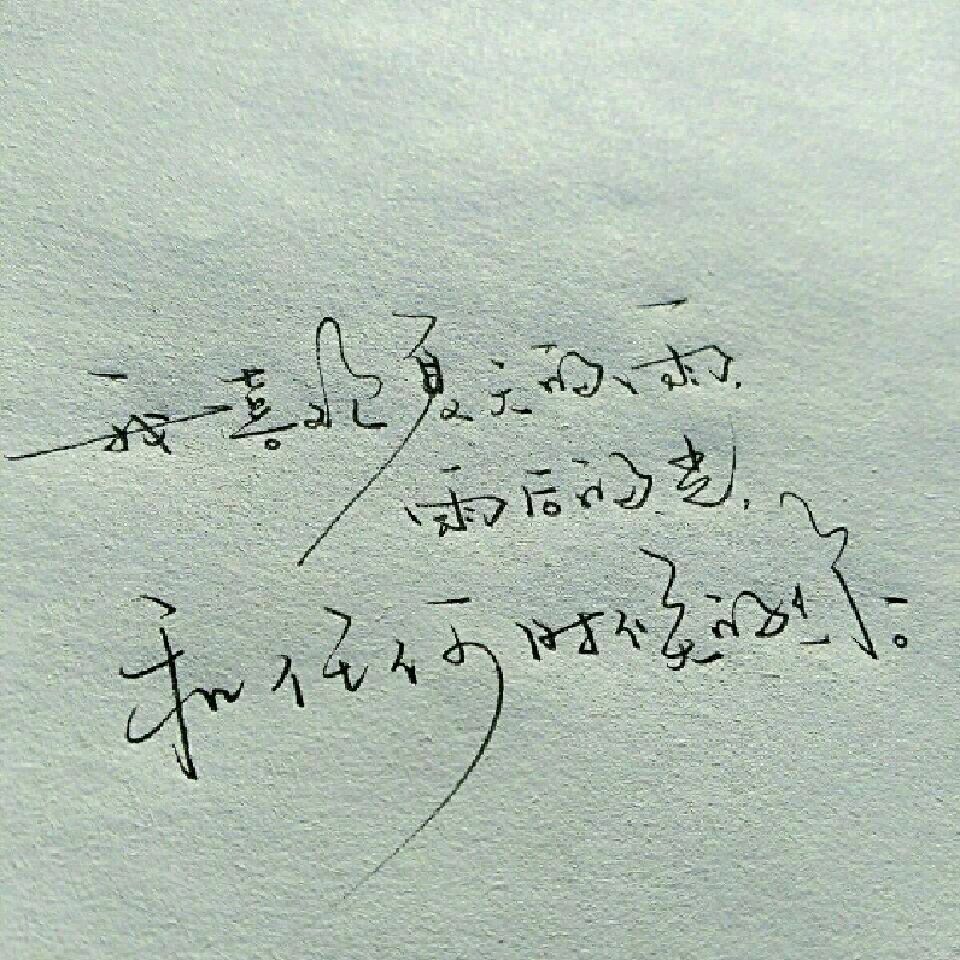 我喜欢夏天的雨,
雨后的光,
和任何时候的你。